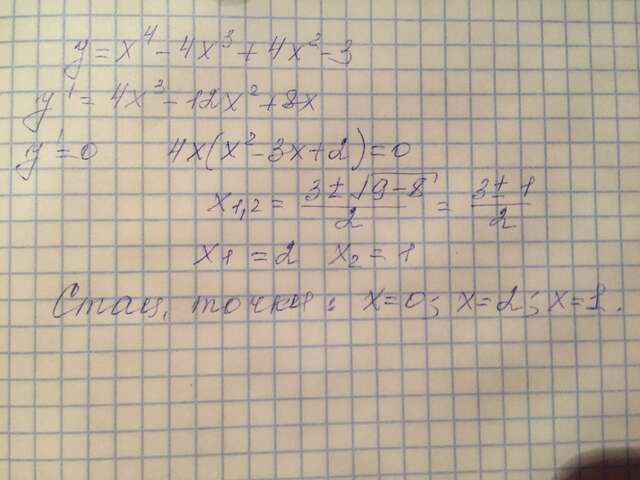 y = x⁴ - 4x³ + 4x² - 3
y' = 4x³ - 12x² + 8x
y' = 0 4x(x² - 3x + 2) = 0
x₁,₂ = (3 ± √(9 - 8))/2 = (3 ± 1)/2
x₁ = 2 x₂ = 1
Стац. точки: x = 0; x = 2; x = 1.